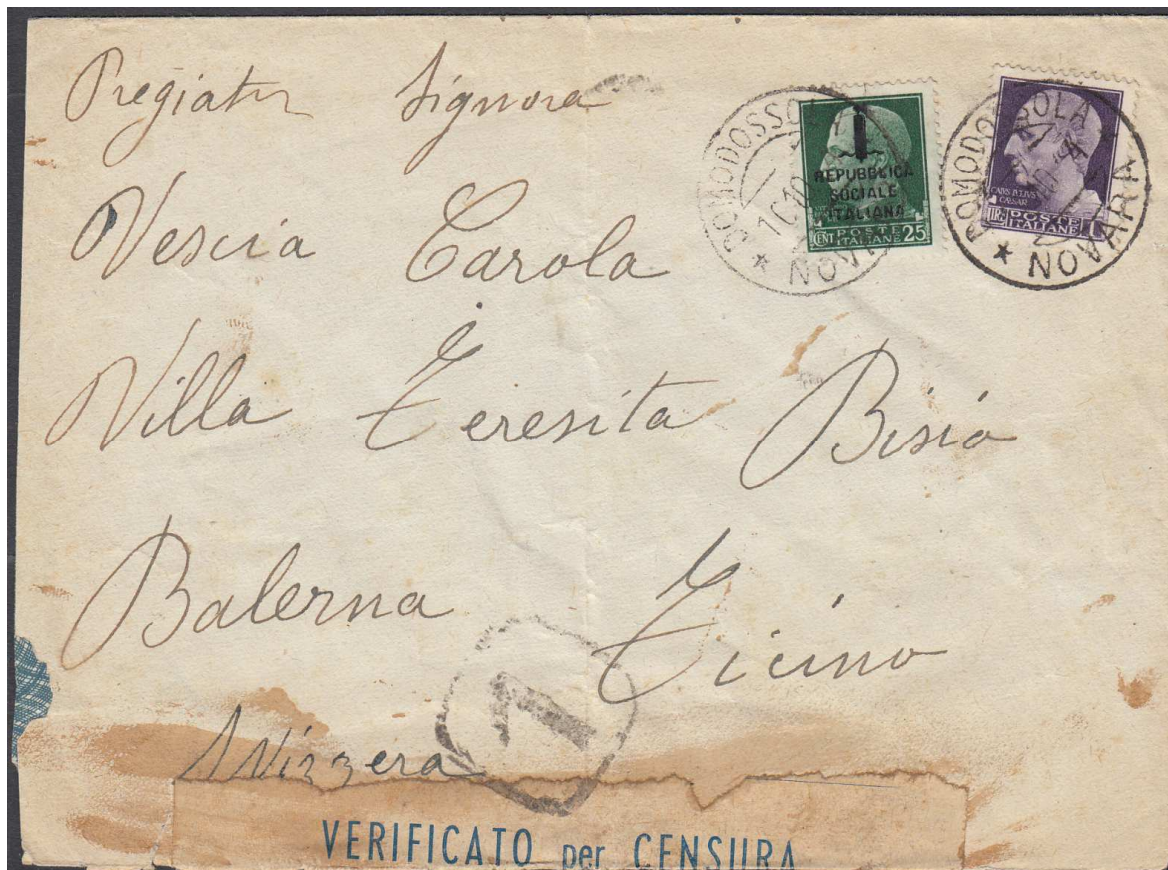 Pregiata Signora
Vescia Carola
Villa Teresita Bisio
Balerna Ticino
Svizzera
DOMODOSSOLA
* NOVARA
REPUBBLICA
SOCIALE
ITALIANA
CENT POSTE ITALIANE 25
DOMODOSSOLA
* NOVARA
CAIVS IVLIVS
CAESAR
LIRE POSTE ITALIANE 1
1
VERIFICATO per CENSURA